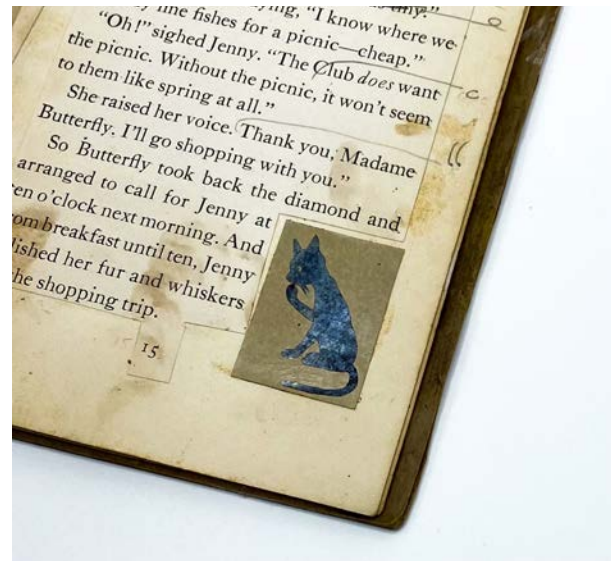 ing, "I know where we
fine fishes for a picnic—cheap."
"Oh!" sighed Jenny. "The Club does want
the picnic. Without the picnic, it won't seem
to them like spring at all."
She raised her voice. Thank you, Madame
Butterfly. I'll go shopping with you."
So Butterfly took back the diamond and
arranged to call for Jenny at
en o'clock next morning. And
om breakfast until ten, Jenny
lished her fur and whiskers
he shopping trip.
15
o
c.
"